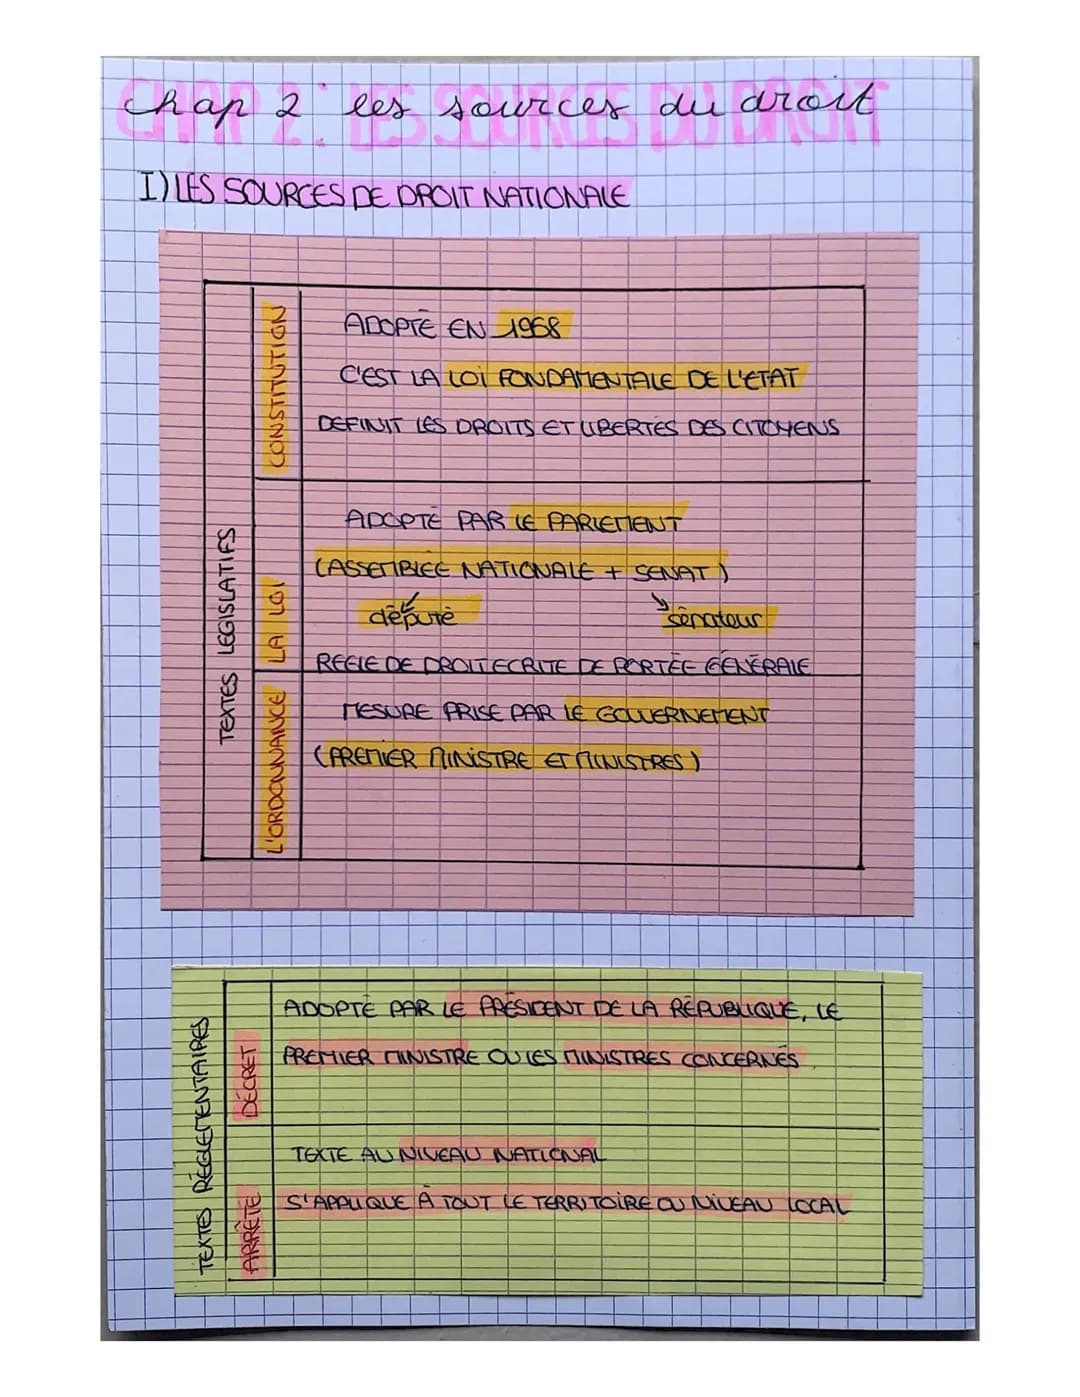 Chap 2 : les sources du droit
I) LES SOURCES DE DROIT NATIONALE
TEXTES LEGISLATIFS
CONSTITUTION
ADOPTÉ EN 1968
C'EST LA LOI FONDAMENTALE DE L'ETAT
DEFINIT LES DROITS ET LIBERTÉS DES CITOYENS
LA LOI
ADOPTÉ PAR LE PARLEMENT
(ASSEMBLÉE NATIONALE + SENAT)
député sénateur
REGLE DE DROIT ECRITE DE PORTÉE GÉNÉRALE
L'ORDONNANCE
MESURE PRISE PAR LE GOUVERNEMENT
(PREMIER MINISTRE ET MINISTRES)
TEXTES RÉGLEMENTAIRES
DÉCRET
ADOPTÉ PAR LE PRÉSIDENT DE LA RÉPUBLIQUE, LE
PREMIER MINISTRE OU LES MINISTRES CONCERNÉS
ARRÊTÉ
TEXTE AU NIVEAU NATIONAL
S'APPLIQUE À TOUT LE TERRITOIRE OU NIVEAU LOCAL